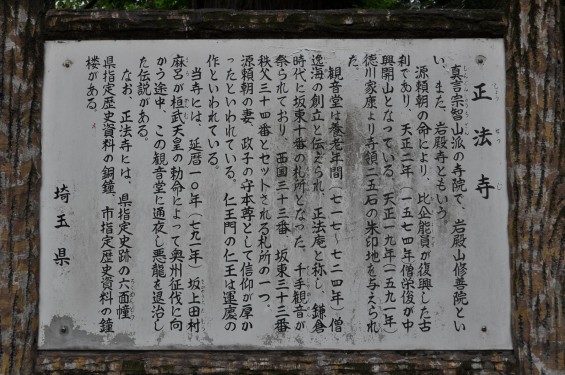 正法寺
真言宗智山派の寺院で、岩殿山修善院とい
い、また、岩殿寺ともいう。
源頼朝の命により、比企能員が復興した古
刹であり、天正二年(一五七四年)僧栄俊が中
興開山となっている。天正一九年(一五九一年)
徳川家康より寺領二五石の朱印地を与えられ
た。
観音堂は養老年間(七一七〜七二四年)僧
逸海の創立と伝えられ、正法庵と称し、鎌倉
時代に坂東十番の札所となった。千手観音が
祭られており、西国三十三番、坂東三十三番
秩父三十四番とセットされる札所の一つ。
源頼朝の妻、政子の守本尊として信仰が厚か
ったといわれている。仁王門の仁王は運慶の
作といわれている。
当寺には、延暦一〇年(七九一年)坂上田村
麻呂が桓武天皇の勅命によって奥州征伐に向
かう途中、この観音堂に通夜し悪龍を退治し
た伝説がある。
なお、正法寺には、県指定史跡の六面幢
県指定歴史資料の銅鐘、市指定歴史資料の鐘
楼がある。
埼玉県